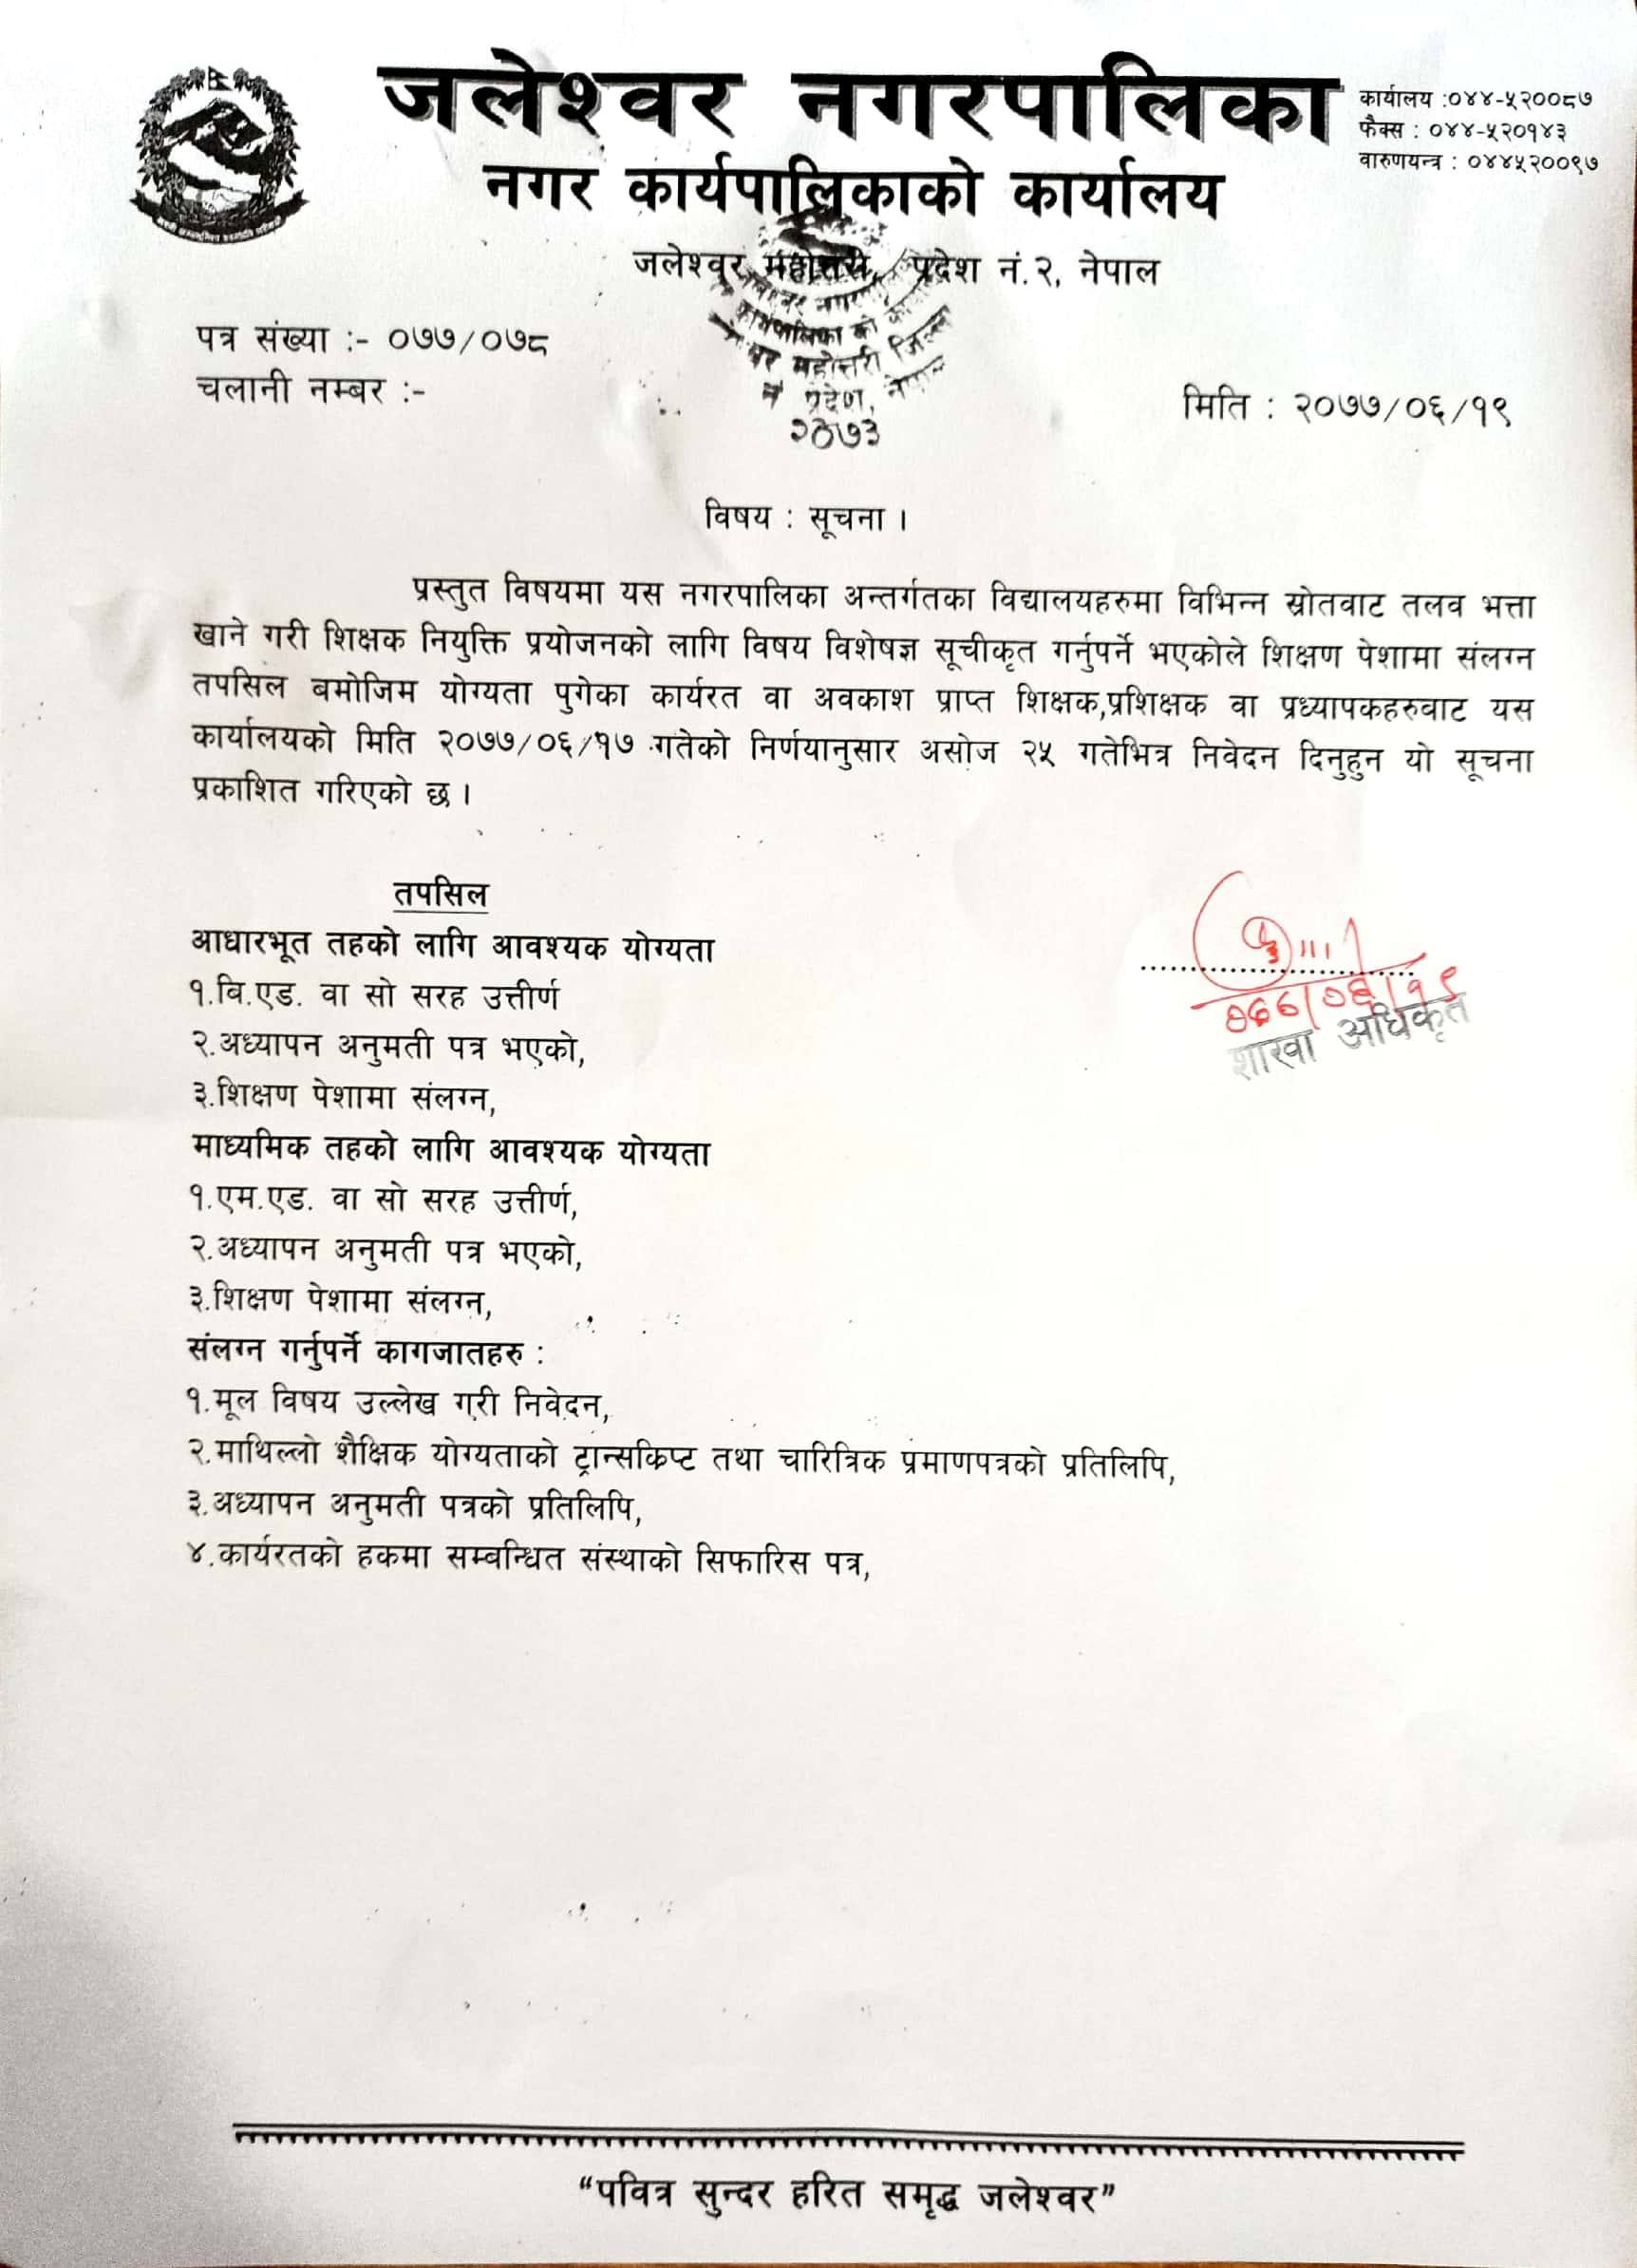 जलेश्वर नगरपालिका
कार्यालय :०४४-५२००८७
फैक्स : ०४४-५२०१४३
वारुणयन्त्र : ०४४५२००९७
नगर कार्यपालिकाको कार्यालय
जलेश्वर महोत्तरी, प्रदेश नं.२, नेपाल
कार्यपालिका को
महोत्तरी जिल्ला
प्रदेश, नेपाल
२०७३
पत्र संख्या :- ०७७/०७८
चलानी नम्बर :-
मिति : २०७७/०६/१९
विषय : सूचना ।
प्रस्तुत विषयमा यस नगरपालिका अन्तर्गतका विद्यालयहरुमा विभिन्न स्रोतवाट तलव भत्ता
खाने गरी शिक्षक नियुक्ति प्रयोजनको लागि विषय विशेषज्ञ सूचीकृत गर्नुपर्ने भएकोले शिक्षण पेशामा संलग्न
तपसिल बमोजिम योग्यता पुगेका कार्यरत वा अवकाश प्राप्त शिक्षक,प्रशिक्षक वा प्रध्यापकहरुवाट यस
कार्यालयको मिति २०७७/०६/१७ गतेको निर्णयानुसार असोज २५ गतेभित्र निवेदन दिनुहुन यो सूचना
प्रकाशित गरिएको छ ।
तपसिल
आधारभूत तहको लागि आवश्यक योग्यता
१.वि.एड. वा सो सरह उत्तीर्ण
२.अध्यापन अनुमती पत्र भएको,
३.शिक्षण पेशामा संलग्न,
०७७/०६/१९
शाखा अधिकृत
माध्यमिक तहको लागि आवश्यक योग्यता
१.एम.एड. वा सो सरह उत्तीर्ण,
२.अध्यापन अनुमती पत्र भएको,
३.शिक्षण पेशामा संलग्न,
संलग्न गर्नुपर्ने कागजातहरु :
१.मूल विषय उल्लेख गरी निवेदन,
२.माथिल्लो शैक्षिक योग्यताको ट्रान्सकिप्ट तथा चारित्रिक प्रमाणपत्रको प्रतिलिपि,
३.अध्यापन अनुमती पत्रको प्रतिलिपि,
४.कार्यरतको हकमा सम्बन्धित संस्थाको सिफारिस पत्र,
“पवित्र सुन्दर हरित समृद्ध जलेश्वर”